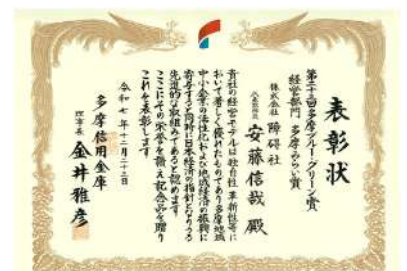 表彰状
第二十三回多摩ブルー・グリーン賞
経営部門 多摩みらい賞
株式会社 障碍社
代表取締役 安藤信哉 殿
貴社の経営モデルは独自性革新性等に
おいて著しく優れたものであり多摩地域
中小企業の活性化および地域経済の振興に
寄与すると同時に日本経済の指針となりうる
先進的な取組みであると認めます
ここにその栄誉を讃え記念品を贈り
これを表彰します
令和七年十二月二十三日
多摩信用金庫
理事長 金井雅彦